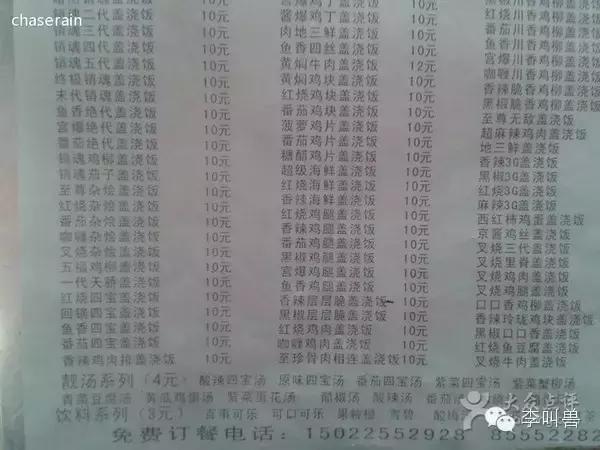 chaserain
销魂二代盖浇饭 10元
销魂三代盖浇饭 10元
销魂四代盖浇饭 10元
销魂五代盖浇饭 10元
终极销魂盖浇饭 10元
末代销魂盖浇饭 10元
鱼香绝代盖浇饭 10元
宫爆绝代盖浇饭 10元
番茄绝代盖浇饭 10元
销魂鸡柳盖浇饭 10元
销魂茄子盖浇饭 10元
至尊杂烩盖浇饭 10元
红烧杂烩盖浇饭 10元
番茄杂烩盖浇饭 10元
咖喱杂烩盖浇饭 10元
叉烧杂烩盖浇饭 10元
五福鸡柳盖浇饭 10元
一代天骄盖浇饭 10元
红烧四宝盖浇饭 10元
回锅四宝盖浇饭 10元
鱼香四宝盖浇饭 10元
番茄四宝盖浇饭 10元
香辣鸡肉排盖浇饭 10元
宫爆鸡丁盖浇饭 10元
酱爆鸡丁盖浇饭 10元
肉地三鲜盖浇饭 10元
鱼香四丝盖浇饭 10元
黄焖牛肉盖浇饭 12元
黄焖鸡块盖浇饭 10元
红烧鸡块盖浇饭 10元
番茄鸡块盖浇饭 10元
菠萝鸡片盖浇饭 10元
番茄鸡片盖浇饭 10元
糖醋鸡片盖浇饭 10元
超级海鲜盖浇饭 10元
红烧海鲜盖浇饭 10元
红烧鸡腿盖浇饭 10元
香辣鸡腿盖浇饭 10元
番茄鸡腿盖浇饭 10元
黑椒鸡腿盖浇饭 10元
宫爆鸡腿盖浇饭 10元
鱼香鸡腿盖浇饭 10元
香辣层层脆盖浇饭 10元
黑椒层层脆盖浇饭 10元
红烧鸡肉盖浇饭 10元
咖喱鸡肉盖浇饭 10元
至珍骨肉相连盖浇饭 10元
黑椒川香鸡柳盖浇饭
红烧川香鸡柳盖浇饭
番茄川香鸡柳盖浇饭
鱼香川香鸡柳盖浇饭
宫爆川香鸡柳盖浇饭
咖喱川香鸡柳盖浇饭
香辣脆香鸡柳盖浇饭
黑椒脆香鸡柳盖浇饭
至尊无敌盖浇饭
超麻辣鸡肉盖浇饭
地三鲜盖浇饭
香辣3G盖浇饭
黑椒3G盖浇饭
红烧3G盖浇饭
麻辣3G盖浇饭
西红柿鸡蛋盖浇饭
京酱鸡丝盖浇饭
叉烧三代盖浇饭
叉烧里脊盖浇饭
叉烧鸡肉盖浇饭
叉烧鸡腿盖浇饭
口口香鸡柳盖浇饭
香辣玲珑鸡块盖浇饭
黑椒口口香盖浇饭
红烧鱼豆腐盖浇饭
叉烧牛肉盖浇饭
靓汤系列（4元） 酸辣四宝汤 原味四宝汤 番茄四宝汤 紫菜四宝汤 紫菜蟹柳汤
青菜豆腐汤 黄瓜鸡蛋汤 紫菜蛋花汤 酸辣汤
饮料系列（3元） 百事可乐 可口可乐 果粒橙 雪碧
免费订餐电话：15022552928 85552282
大众点评
李叫兽